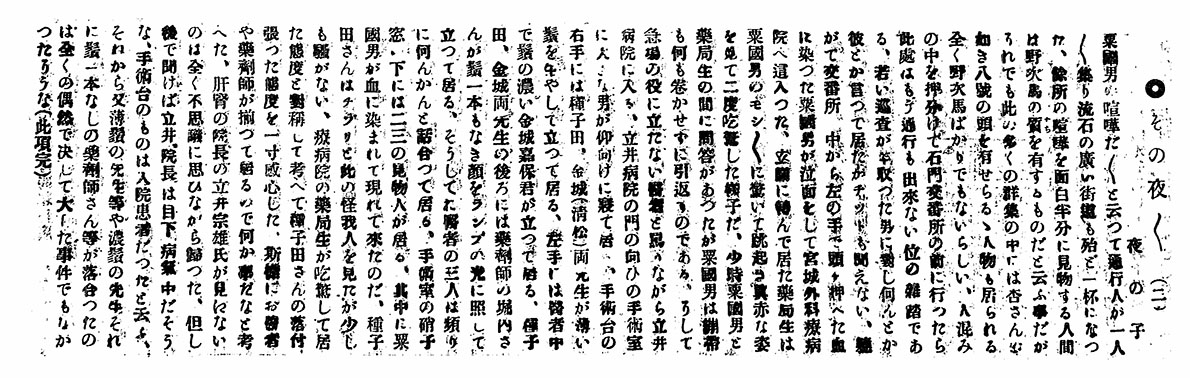 その夜〱（二）
夜の子
粟國男の喧嘩だ〱と云つて通行人が一人
〱集り流石の廣い街道も殆ど一杯になつ
た、餘所の喧嘩を面白半分に見物する人間
は野次馬の質を有するものだと云ふ事だが
うれでも此の多くの群集の中には杏さん
如き八號の頭を有せらるゝ人物も居られる
全く野次馬ばかりでもないらしい、人混み
の中を押分けて石門交番所の前に行つたら
此處はもう通行も出來ない位の雜踏であ
る、若い巡査が年取つた男に對し何んとか
彼とか言つて居たが
も聞えない、
て交番所 中から左の手で頭 押へた血
に染つた粟國男が泣面をして宮城外科療病
院へ這入つた、立關に
んで居た藥局生は
粟國男のモシ〱に驚いて跳起き眞赤な姿
を見て二度吃驚した樣子だ、少時粟國男と
藥局生の間に問答があつたが粟國男は繃帶
も何も卷かせずに引返すのである、うして
急場の役に立たない醫者と罵りながら立井
病院に入る、立井病院の門の向ひの手術室
に大きな男が仰向けに寢て居 手術台の
右手には種子田、金城（清松）両先生が薄い
鬚を生やして立つて居る、左手には醫者中
で鬚の濃い金城嘉保君が立つて居る、種子
田、金城両先生の後ろには藥劑師の堀内さ
んが鬚一本もなき顔をランプの光に照して
立つて居る、そうして醫者の三人は頻り
に何んかんと話合つて居る。手術室の硝子
窓ノ下には二三の見物人が居る、其中に粟
國男が血に染まれて現れて來たのだ、種子
田さんはチラリと此の怪我人を見たが少し
も騷がない、療病院の藥局生が吃驚して居
た態度と對稱して考へて種子田さんの落付
張つた態度を一寸感心した、斯樣にお醫者
や藥劑師が揃つて居るので何か事だなと考
へた、肝腎の院長の立井宗雄氏が見えない
のは全く不思議に思ひながら歸つた、但し
後で聞けば立井院長は目下病氣中だそう
な、手術台のものは入院患者だつたと云ふ、
それから又薄鬚の先生等や濃鬚の先生それ
に鬚一本なしの藥劑師さん等が落合つたの
は全くの偶然で决して大した事件でもなか
つたうな（此項完）